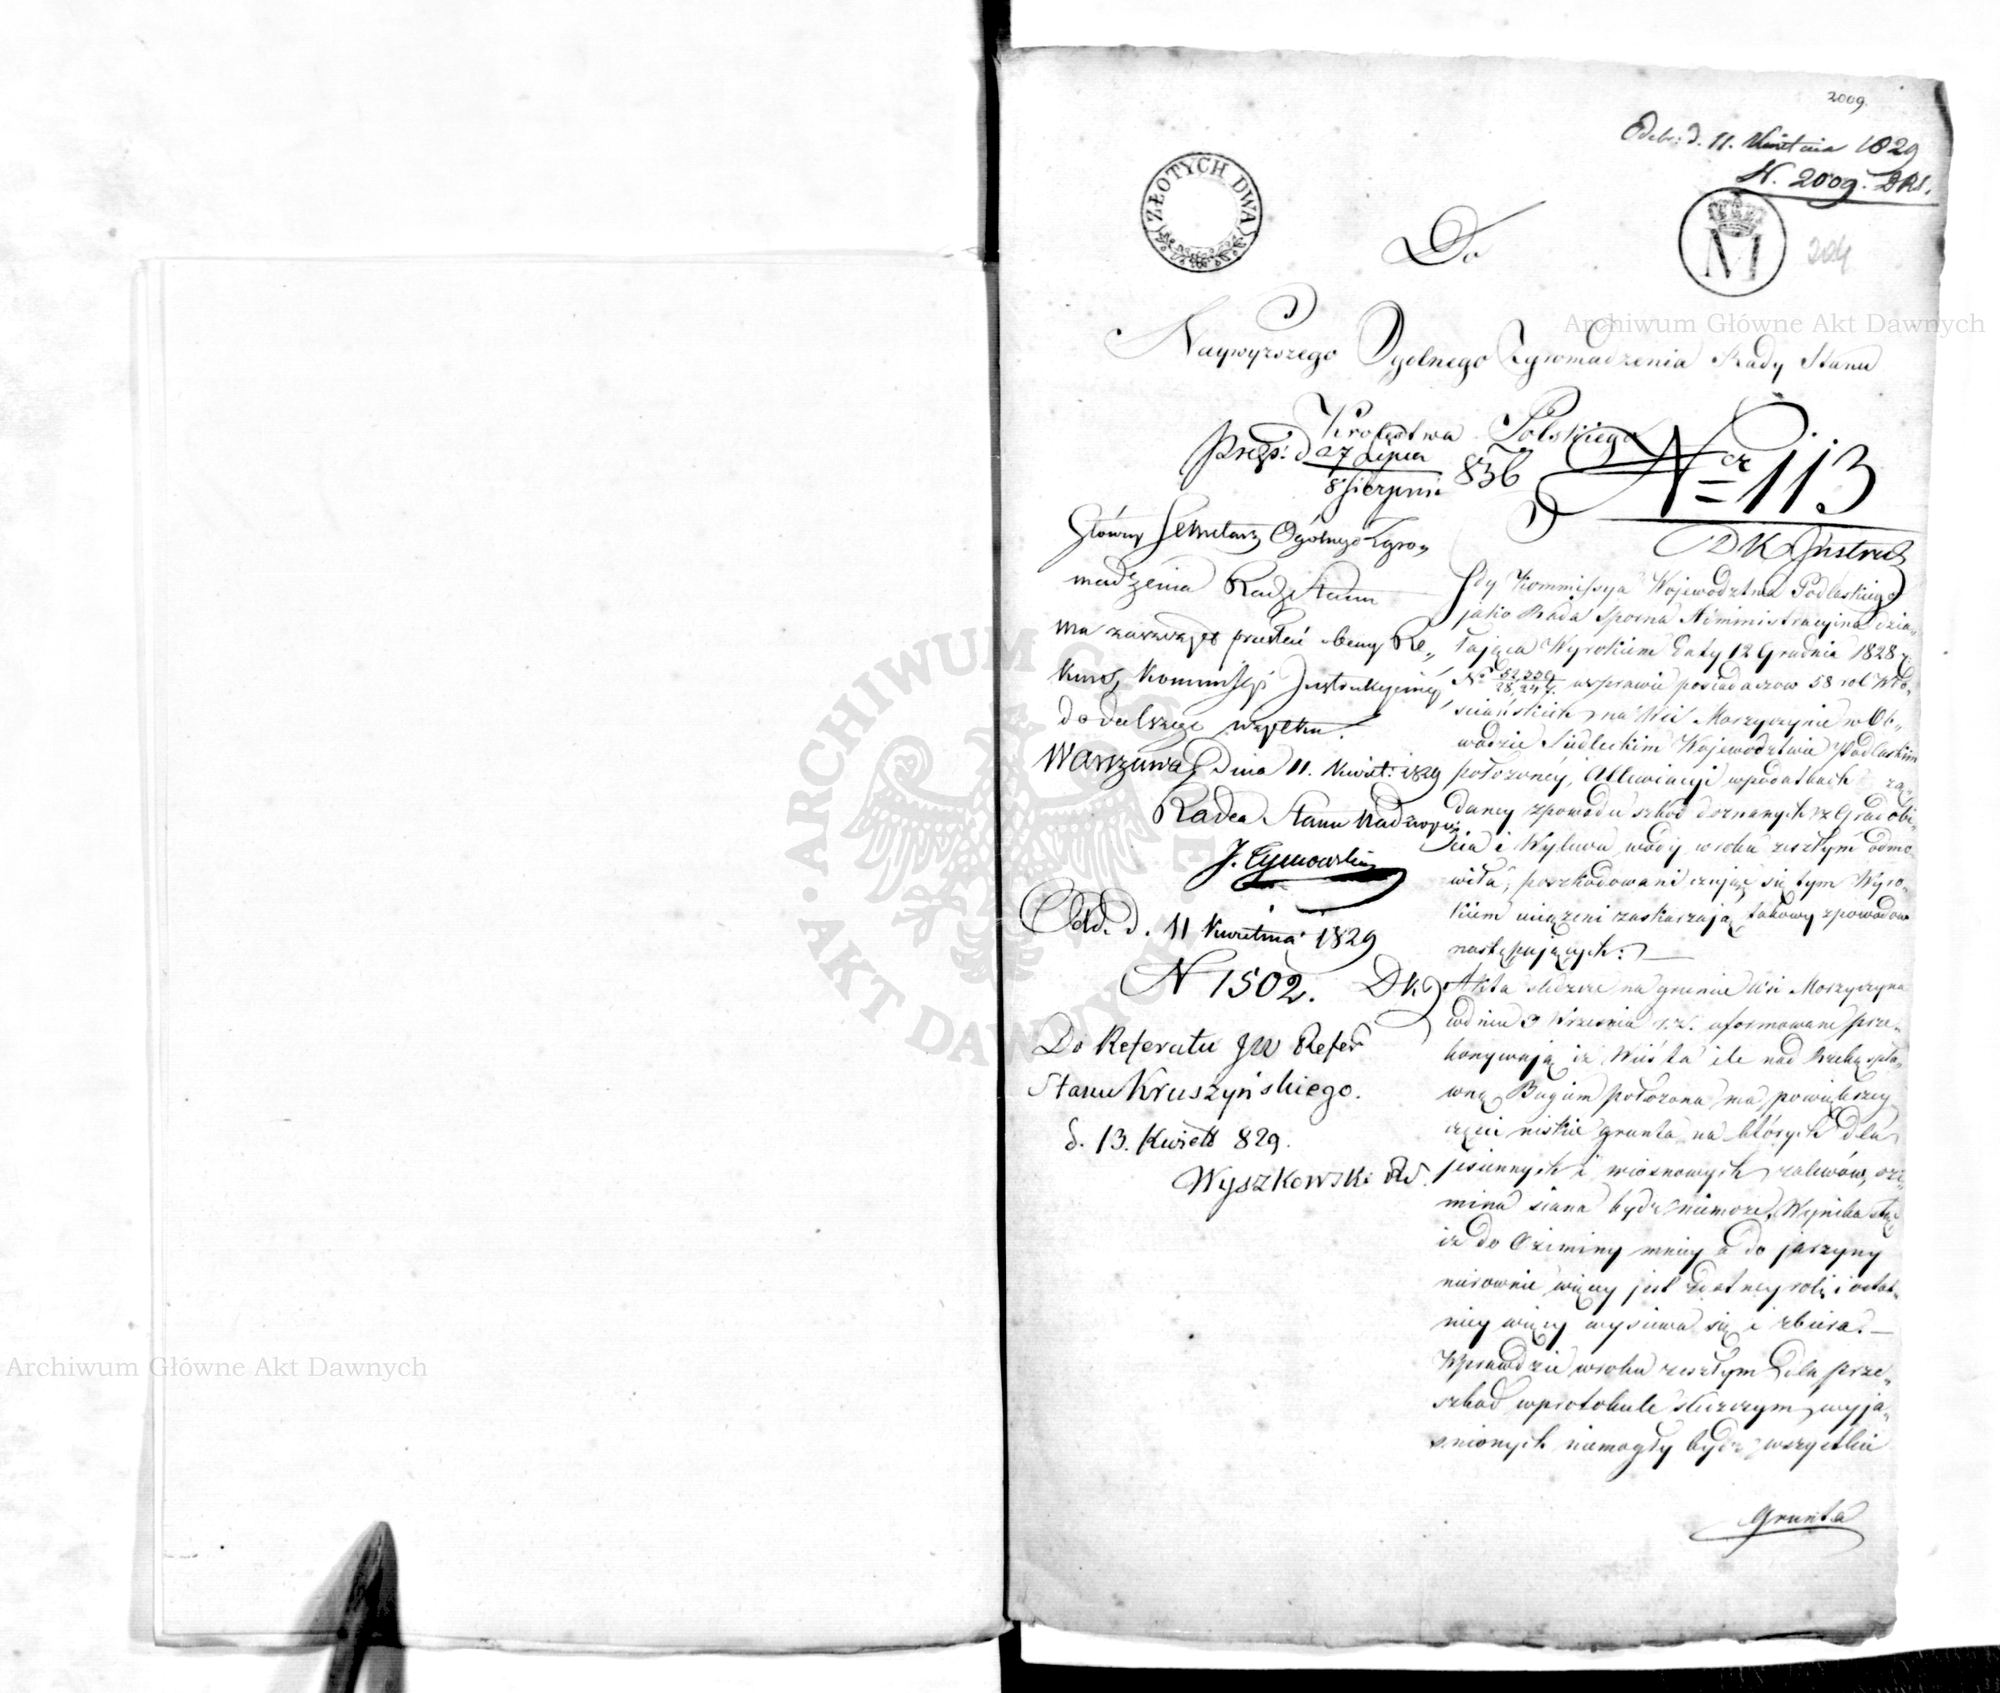 2009.
Odebr: d. 11. Kwietnia 1829
N. 2009. DKI.
ZŁOTYCH DWA
M
204
Do
Naywyższego Ogolnego Zgromadzenia Rady Stanu
Krolestwa Polskiego
Preż: d 27 Lipca
8 Sierpni 836
Ner 113
DK Instruk
Główny Sekretarz Ogólnego Zgro„
madzenia Rady Stanu
ma zaszczyt przesłać obecny Re„
kurs, Kommissyi Instrukcyiney
do dalszego użytku.
Warszawa Dnia 11. Kwiet: 1829
Radca Stanu Nadzwycz
J. Tymowski
Odd. d. 11 Kwietnia 1829
N 1502. DK
Do Referatu JW Refer
Stanu Kruszyńskiego.
d. 13. Kwiet 829.
Wyszkowski RS.
Gdy Kommissya Woiewodztwa Podlaskiego
jako Rada Sporna Administracyina dzia„
łaiąca Wyrokiem daty 12 Grudnia 1828 r.
No w sprawie posiadaczow 58 rol Wło„
sciańskich na Wsi Morzyczynie w Ob„
wodzie Siedleckim Woiewodztwie Podlaskim
położoney, Allewiacyi w podatkach żą„
daney z powodu szkod doznanych z Gradobi„
cia i Wylewu wody w roku zeszłym odmo„
wiła; poszkodowani czuiąc się tym Wyro„
kiem uciążeni zaskarżaią takowy z powodow
następuiących: —
Akta śledcze na gruncie Wsi Morzyczyna
w dniu 3 Września r. z. uformowane prze„
konywaią iż Wieś ta ile nad Rzeką spła„
wną Bugiem położona ma powiększey
części niskie grunta na których dla
jesiennych i wiosnowych zalewów, ozi„
mina siana bydź niemoże, Wynika stąd
iż do Oziminy mniey a do jarzyny
nierownie więcey jest zdatney roli i ostat„
niey więcey wysiewa się i zbiera. —
Wprawdzie w roku zeszłym dla prze„
szkod w protokule śledczym wyja„
śnionych niemogły bydź wszystkie
Grunta
Archiwum Główne Akt Dawnych
Archiwum Główne Akt Dawnych